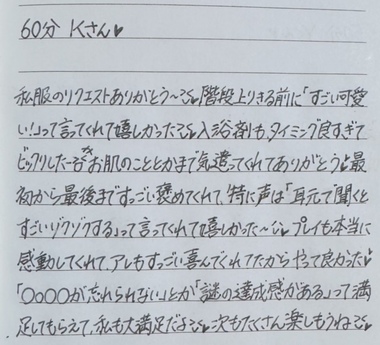 60分 Kさん♥
私服のリクエストありがとう〜 階段上りきる前に「すごい可愛
い！」って言ってくれて嬉しかった 入浴剤も、タイミング良すぎて
ビックリした〜 お肌のこととかまで気遣ってくれてありがとう 最
初から最後まですっごい褒めてくれて、特に声は「耳元で聞くと
すごいゾクゾクする」って言ってくれて嬉しかった〜 プレイも本当に
感動してくれて、アレもすっごい喜んでくれてたからやって良かった
「○○○○が忘れられない」とか「謎の達成感がある」って満
足してもらえて、私も大満足だよ 次もたくさん楽しもうね